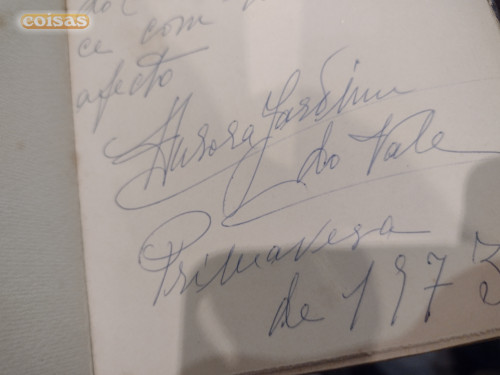 coisas
ce com
afecto
Aurora Jardim
do Vale
Primavera
de 1973